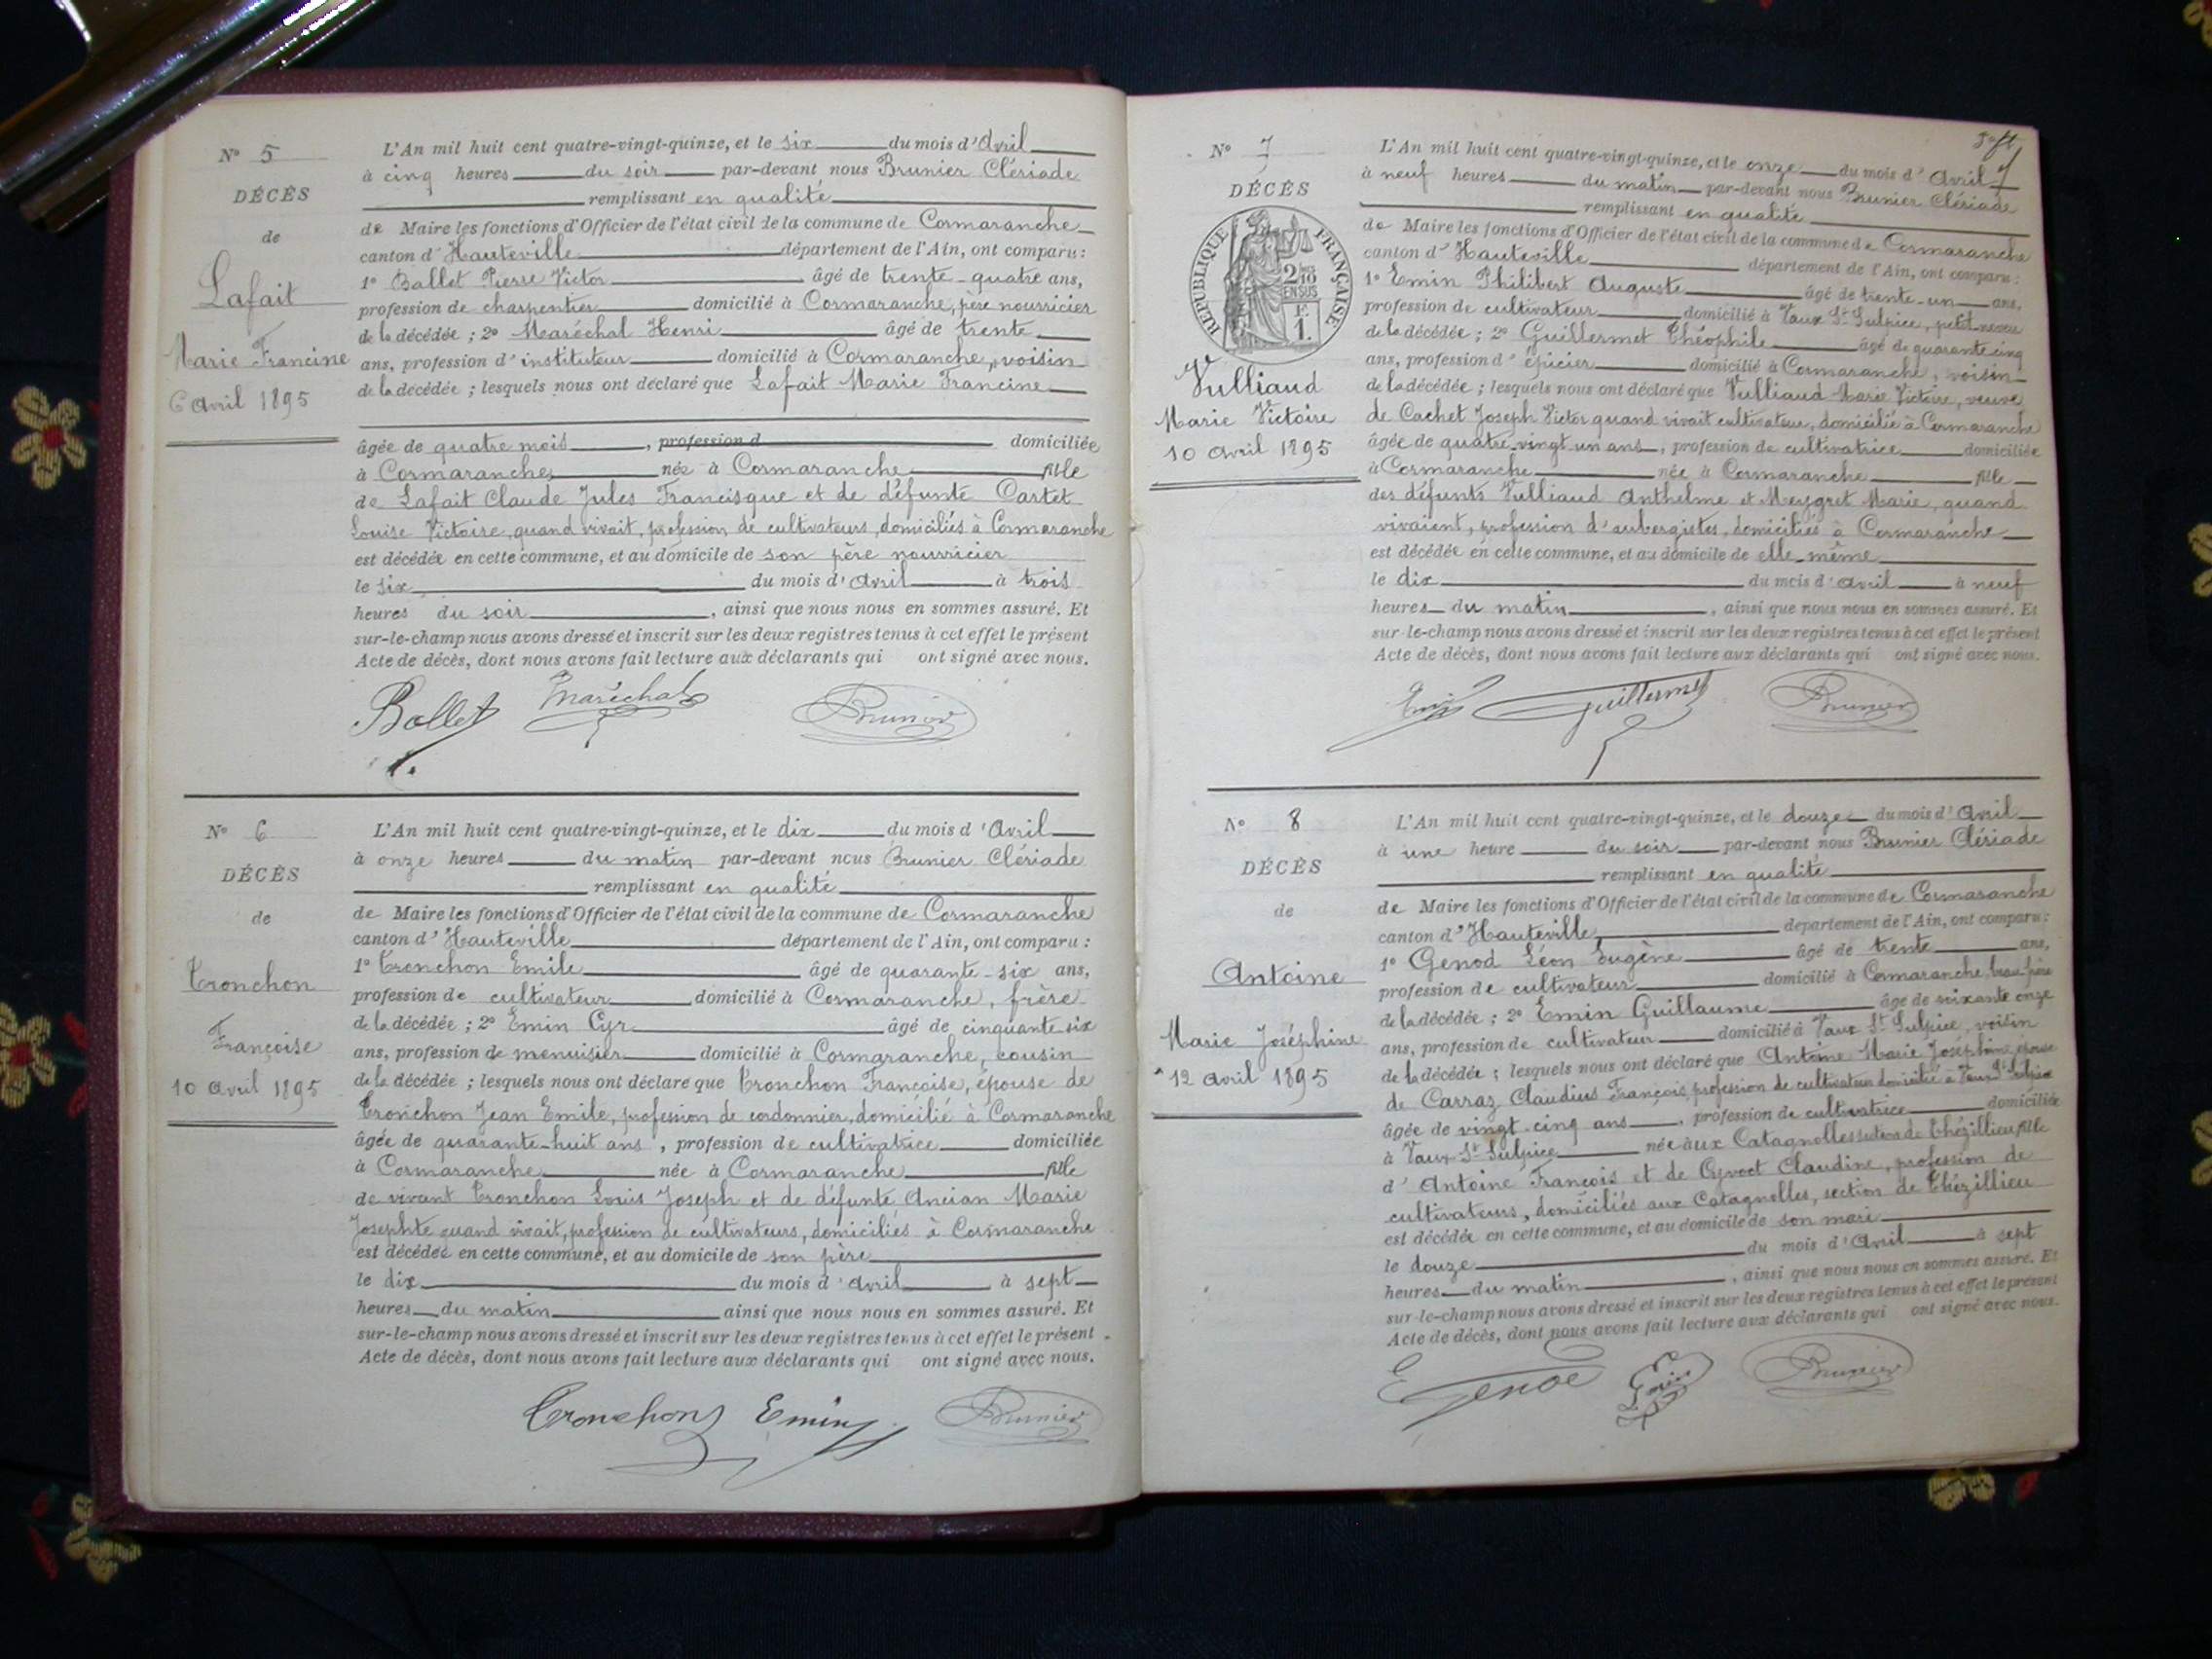 N° 5
DÉCÈS
de
Lafait
Marie Francine
6 Avril 1895
L'An mil huit cent quatre-vingt-quinze, et le six du mois d'Avril
à cinq heures du soir par-devant nous Brunier Clériade
remplissant en qualité
de Maire les fonctions d'Officier de l'état civil de la commune de Cormaranche
canton d'Hauteville département de l'Ain, ont comparu :
1° Ballet Pierre Victor âgé de trente-quatre ans,
profession de charpentier domicilié à Cormaranche, père nourricier
de la décédée ; 2° Maréchal Henri âgé de trente
ans, profession d'instituteur domicilié à Cormaranche, voisin
de la décédée ; lesquels nous ont déclaré que Lafait Marie Francine
âgée de quatre mois, profession d domiciliée
à Cormaranche, née à Cormaranche fille
de Lafait Claude Jules Francisque et de défunte Cartet
Louise Victoire, quand vivait, profession de cultivateurs, domiciliés à Cormaranche
est décédée en cette commune, et au domicile de son père nourricier
le six du mois d'Avril à trois
heures du soir, ainsi que nous nous en sommes assuré. Et
sur-le-champ nous avons dressé et inscrit sur les deux registres tenus à cet effet le présent
Acte de décès, dont nous avons fait lecture aux déclarants qui ont signé avec nous.
Ballet Maréchal Brunier
N° 6
DÉCÈS
de
Tronchon
Françoise
10 Avril 1895
L'An mil huit cent quatre-vingt-quinze, et le dix du mois d'Avril
à onze heures du matin par-devant nous Brunier Clériade
remplissant en qualité
de Maire les fonctions d'Officier de l'état civil de la commune de Cormaranche
canton d'Hauteville département de l'Ain, ont comparu :
1° Tronchon Emile âgé de quarante-six ans,
profession de cultivateur domicilié à Cormaranche, frère
de la décédée ; 2° Emin Cyr âgé de cinquante six
ans, profession de menuisier domicilié à Cormaranche, cousin
de la décédée ; lesquels nous ont déclaré que Tronchon Françoise, épouse de
Tronchon Jean Emile, profession de cordonnier, domicilié à Cormaranche
âgée de quarante-huit ans, profession de cultivatrice domiciliée
à Cormaranche née à Cormaranche fille
de vivant Tronchon Louis Joseph et de défunte Ancian Marie
Josephte quand vivait, profession de cultivateurs, domiciliés à Cormaranche
est décédée en cette commune, et au domicile de son père
le dix du mois d'avril à sept
heures du matin ainsi que nous nous en sommes assuré. Et
sur-le-champ nous avons dressé et inscrit sur les deux registres tenus à cet effet le présent
Acte de décès, dont nous avons fait lecture aux déclarants qui ont signé avec nous.
Tronchon Emin Brunier
N° 7
DÉCÈS
RÉPUBLIQUE FRANÇAISE
EN SUS
Vulliaud
Marie Victoire
10 Avril 1895
7
L'An mil huit cent quatre-vingt-quinze, et le onze du mois d'Avril
à neuf heures du matin par-devant nous Brunier Clériade
remplissant en qualité
de Maire les fonctions d'Officier de l'état civil de la commune de Cormaranche
canton d'Hauteville département de l'Ain, ont comparu :
1° Emin Philibert Auguste âgé de trente-un ans,
profession de cultivateur domicilié à Vaux St Sulpice, petit neveu
de la décédée ; 2° Guillermet Théophile âgé de quarante cinq
ans, profession d'épicier domicilié à Cormaranche, voisin
de la décédée ; lesquels nous ont déclaré que Vulliaud Marie Victoire, veuve
de Cachet Joseph Victor quand vivait cultivateur, domicilié à Cormaranche
âgée de quatre-vingt-un ans, profession de cultivatrice domiciliée
à Cormaranche née à Cormaranche fille
des défunts Vulliaud Anthelme et Meygret Marie, quand
vivaient, profession d'aubergistes, domiciliés à Cormaranche
est décédée en cette commune, et au domicile de elle-même
le dix du mois d'avril à neuf
heures du matin, ainsi que nous nous en sommes assuré. Et
sur-le-champ nous avons dressé et inscrit sur les deux registres tenus à cet effet le présent
Acte de décès, dont nous avons fait lecture aux déclarants qui ont signé avec nous.
Emin Guillermet Brunier
N° 8
DÉCÈS
de
Antoine
Marie Joséphine
12 avril 1895
L'An mil huit cent quatre-vingt-quinze, et le douze du mois d'Avril
à une heure du soir par-devant nous Brunier Clériade
remplissant en qualité
de Maire les fonctions d'Officier de l'état civil de la commune de Cormaranche
canton d'Hauteville, département de l'Ain, ont comparu :
1° Genod Léon Eugène âgé de trente ans,
profession de cultivateur domicilié à Cormaranche, beau-frère
de la décédée ; 2° Emin Guillaume âgé de soixante onze
ans, profession de cultivateur domicilié à Vaux St Sulpice, voisin
de la décédée ; lesquels nous ont déclaré que Antoine Marie Joséphine, épouse
de Carraz Claudius François, profession de cultivateur domicilié à Vaux St Sulpice
âgée de vingt cinq ans, profession de cultivatrice domiciliée
à Vaux St Sulpice née aux Catagnolles section de Thézillieu fille
d'Antoine François et de Claudine, profession de
cultivateurs, domiciliés aux Catagnolles, section de Thézillieu
est décédée en cette commune, et au domicile de son mari
le douze du mois d'Avril à sept
heures du matin, ainsi que nous nous en sommes assuré. Et
sur-le-champ nous avons dressé et inscrit sur les deux registres tenus à cet effet le présent
Acte de décès, dont nous avons fait lecture aux déclarants qui ont signé avec nous.
E Genod Emin Brunier